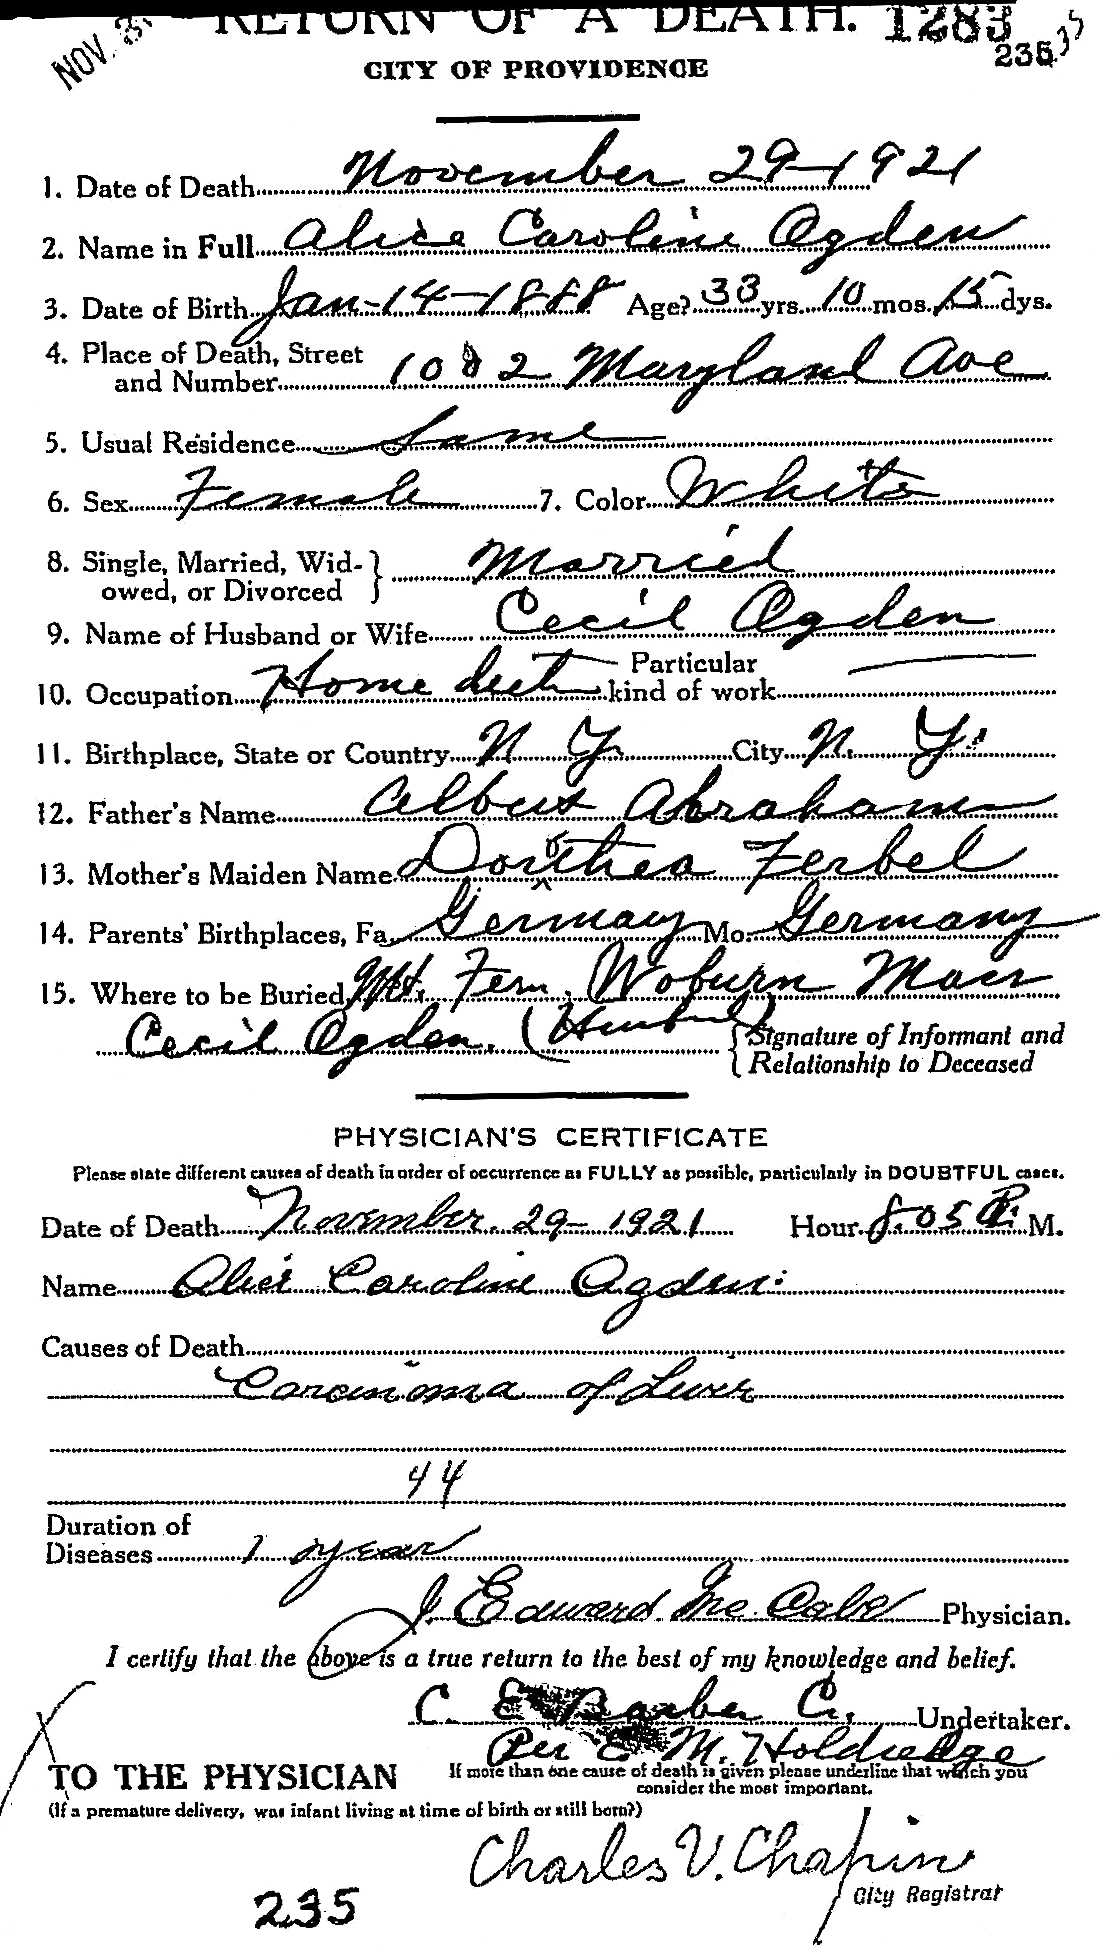 RETURN OF A DEATH. 1283
NOV. 235 35
CITY OF PROVIDENCE
1. Date of Death November 29-1921
2. Name in Full Alice Caroline Ogden
3. Date of Birth Jan-14-1888 Age? 33 yrs. 10 mos. 15 dys.
4. Place of Death, Street
and Number 1002 Maryland Ave
5. Usual Residence Same
6. Sex Female 7. Color White
8. Single, Married, Wid-
owed, or Divorced } Married
9. Name of Husband or Wife Cecil Ogden
10. Occupation Home Particular
kind of work
11. Birthplace, State or Country N Y. City N. Y.
12. Father's Name Albert Abraham
13. Mother's Maiden Name Dorothea Ferbel
14. Parents' Birthplaces, Fa. Germany Mo. Germany
15. Where to be Buried Mt. Fern, Woburn Mass
Cecil Ogden. (Husband) { Signature of Informant and
Relationship to Deceased
PHYSICIAN'S CERTIFICATE
Please state different causes of death in order of occurrence as FULLY as possible, particularly in DOUBTFUL cases.
Date of Death November 29-1921 Hour 8.05 P. M.
Name Alice Caroline Ogden
Causes of Death
Carcinoma of Liver
44
Duration of
Diseases 1 year
J. Edward McCabe Physician.
I certify that the above is a true return to the best of my knowledge and belief.
C. E. Barber Co. Undertaker.
Per E M. Holdredge
TO THE PHYSICIAN If more than one cause of death is given please underline that which you
consider the most important.
(If a premature delivery, was infant living at time of birth or still born?)
Charles V. Chapin
City Registrar
235